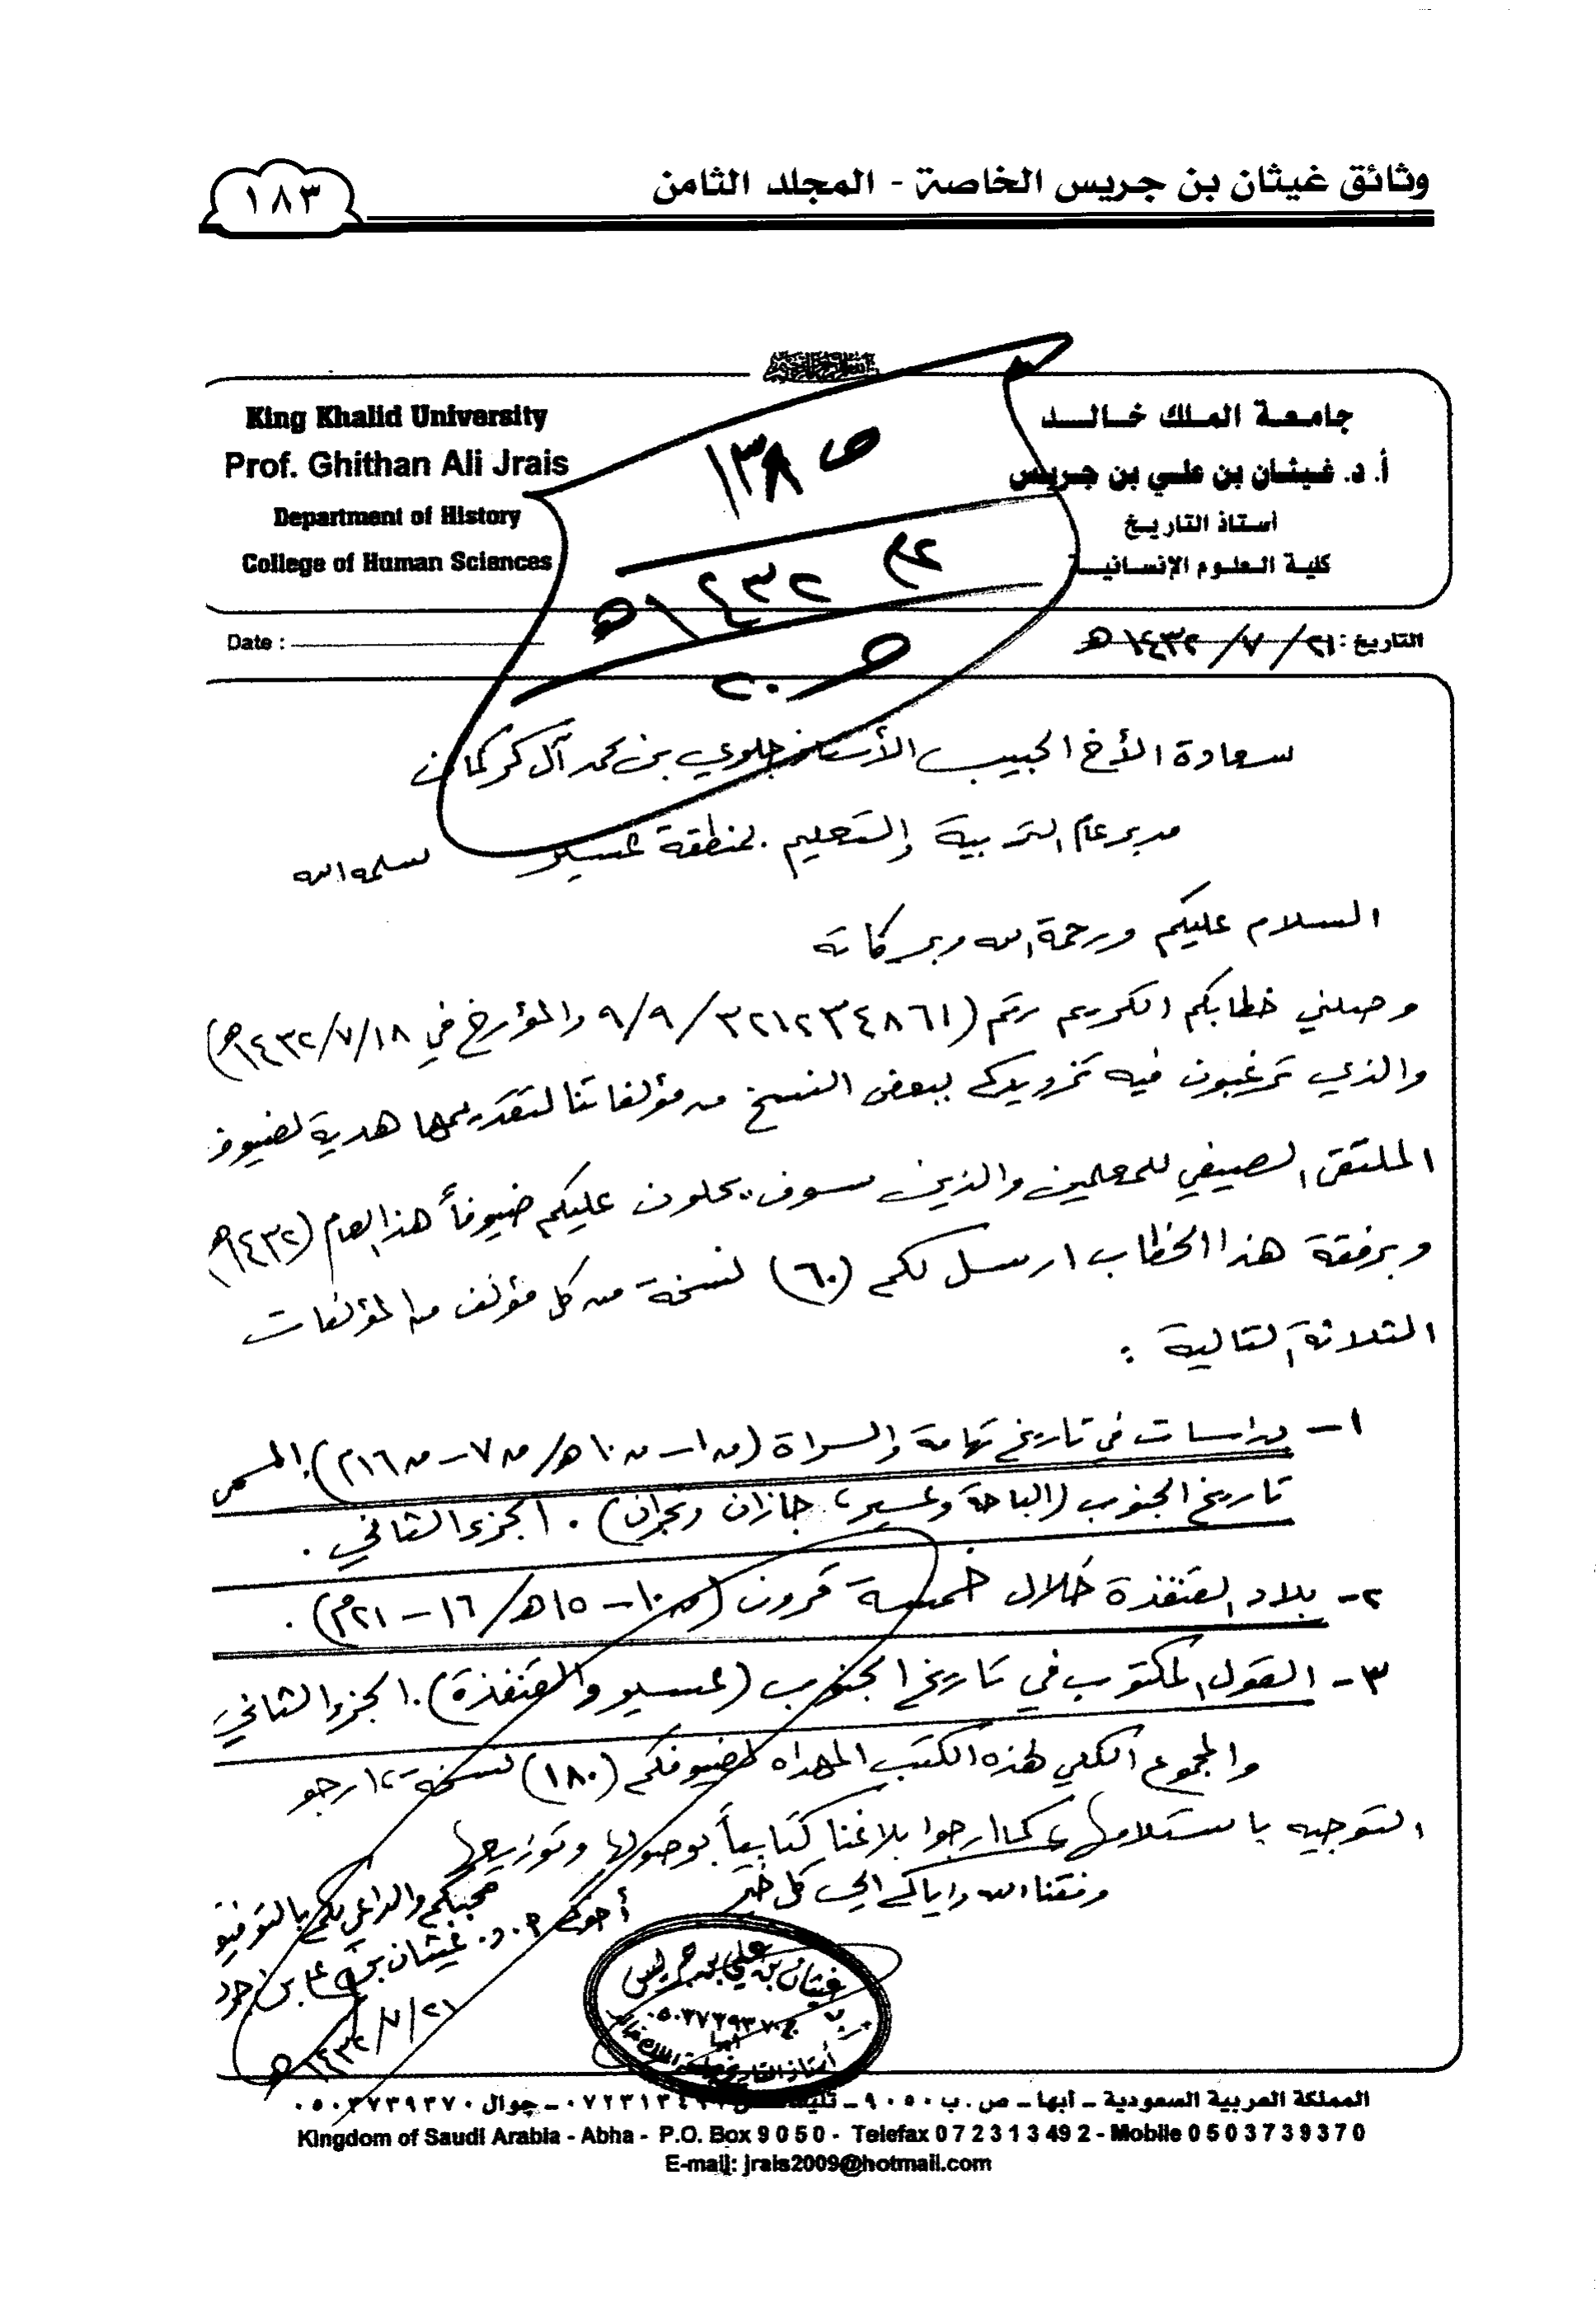 وثائق غيثان بن جريس الخاصة - المجلد الثامن
١٨٣
King Khalid University
Prof. Ghithan Ali Jrais
Department of History
College of Human Sciences
جامعة الملك خالد
أ. د. غيثان بن علي بن جريس
أستاذ التاريخ
كلية العلوم الإنسانية
ص ١٣٨
م٢
١٤٣٢هـ
Date :
التاريخ : ٢١ / ٧ / ١٤٣٢ هـ
سعادة الأخ الحبيب الأستاذ جلوي بن محمد آل كركمان
مدير عام التربية والتعليم بمنطقة عسير سلمه الله
السلام عليكم ورحمة الله وبركاته
وصلني خطابكم الكريم رقم (٣٢١٢٣٤٨٦١ /٩/٩ والمؤرخ في ١٨/٧/١٤٣٢هـ)
والذي ترغبون فيه تزويدكم ببعض النسخ من مؤلفاتنا لتقديمها هدية لضيوف
الملتقى الصيفي للمعلمين والذين سوف يحلون عليكم ضيوفاً هذا العام (١٤٣٢هـ
وبرفقة هذا الخطاب ارسل لكم (٦٠) نسخة من كل مؤلف من المؤلفات
الثلاثة التالية :
١- دراسات في تاريخ تهامة والسراة (من ١ - من ١٠هـ / من ٧ - من ١٦م). المسمى
تاريخ الجنوب (الباحة وعسير، جازان ونجران) . الجزء الثاني .
٢- بلاد القنفذة خلال خمسة قرون (من ١٠ - ١٥هـ / ١٦ - ٢١م) .
٣- القول المكتوب في تاريخ الجنوب (عسير والقنفذة). الجزء الثاني
والمجموع الكلي لهذه الكتب المهداه لضيوفكم (١٨٠) نسخة، ارجو
التوجيه باستلامها، كما ارجوا بلاغنا كتابياً بوصولها وتوزيعها
وفقنا الله واياكم الى كل خير
محبكم والداعي لكم بالتوفيق
أخوكم أ. د. غيثان بن علي بن جريس
٢١/٧/١٤٣٢هـ
غيثان بن علي بن جريس
ج ٠٥٠٣٧٣٩٣٧٠
أبها
أستاذ التاريخ بجامعة الملك خالد
المملكة العربية السعودية - أبها - ص . ب ٩٠٥٠ - تليفاكس ٠٧٢٣١٣٤٩٢ - جوال ٠٥٠٣٧٣٩٣٧٠
Kingdom of Saudi Arabia - Abha - P.O. Box 9 0 5 0 - Telefax 0 7 2 3 1 3 4 9 2 - Mobile 0 5 0 3 7 3 9 3 7 0
E-mail: jrais2009@hotmail.com